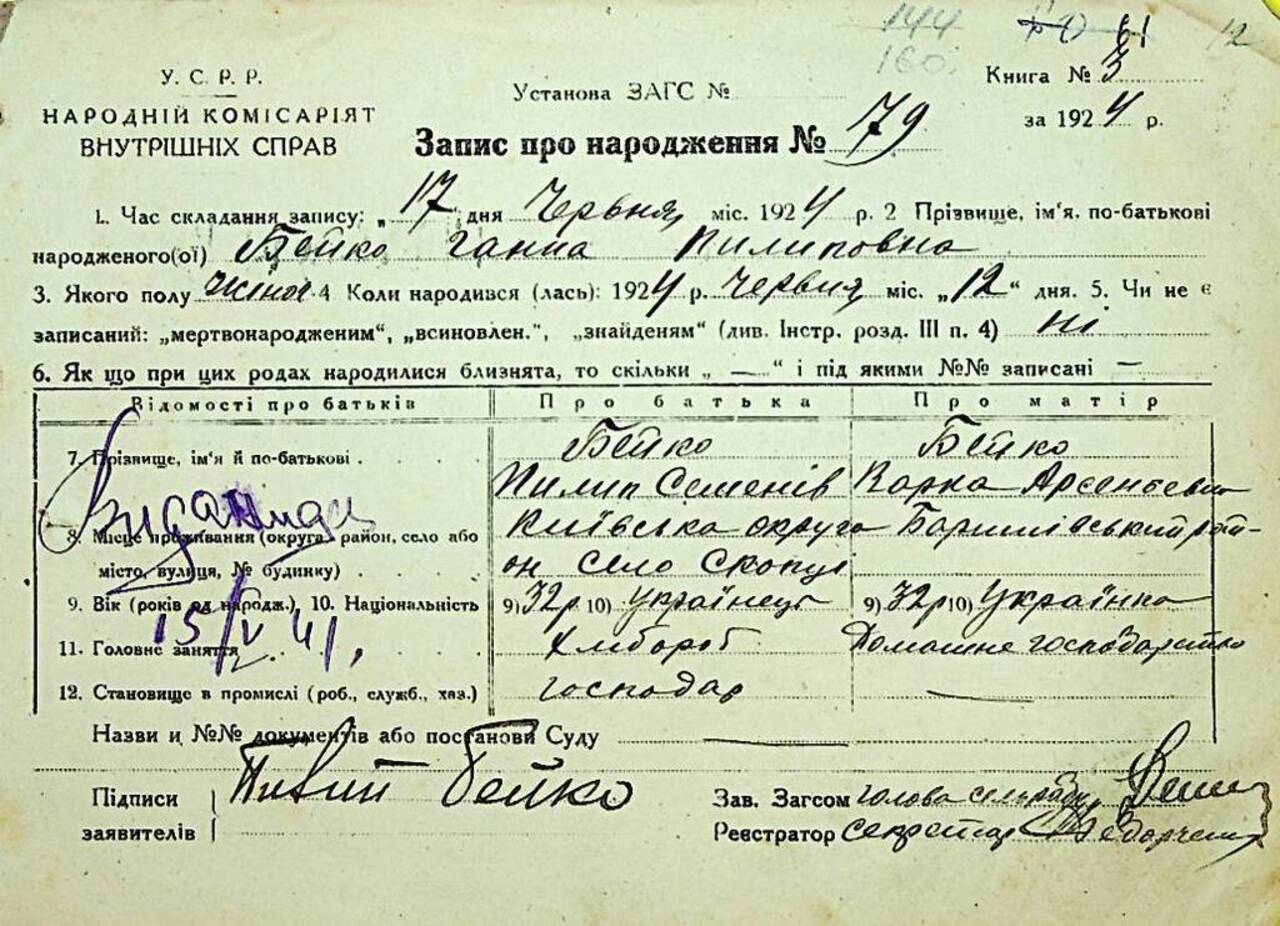 144 61 12
160.
У. С. Р. Р.
НАРОДНІЙ КОМІСАРІЯТ
ВНУТРІШНІХ СПРАВ
Установа ЗАГС №
Книга № 3
за 1924 р.
Запис про народження № 79
1. Час складання запису: „17 дня Червня, міс. 1924 р. 2 Прізвище, ім'я. по-батькові
народженого(ої) Бейко Ганна Пилиповна
3. Якого полу Жіноч 4 Коли народився (лась): 1924 р. Червня міс. „12“ дня. 5. Чи не є
записаний: „мертвонародженим“, „всиновлен.", „знайденям“ (див. Інстр. розд. III п. 4) Ні
6. Як що при цих родах народилися близнята, то скільки „ — “ і під якими №№ записані —
Відомості про батьків Про батька Про матір
7. Прізвище, ім'я й по-батькові . . . . Бейко Бейко
Пилип Семенів Арсеноевна
8. Місце проживання (округа, район, село або Київська округа Баришівський рай-
місто, вулиця, № будинку) . . . . он село Скопці
9. Вік (років од народж.), 10. Національність 9) 32 р 10) українець 9) 32 р 10) Українка
11. Головне заняття . . . . Хлібороб Домашне господарство
12. Становище в промислі (роб., служб., хаз.) господар —
15/V 41,
Назви и №№ документів або постанови Суду —
Підписи
заявителів
Бейко
Зав. Загсом Голова сельради
Реєстратор Секретар